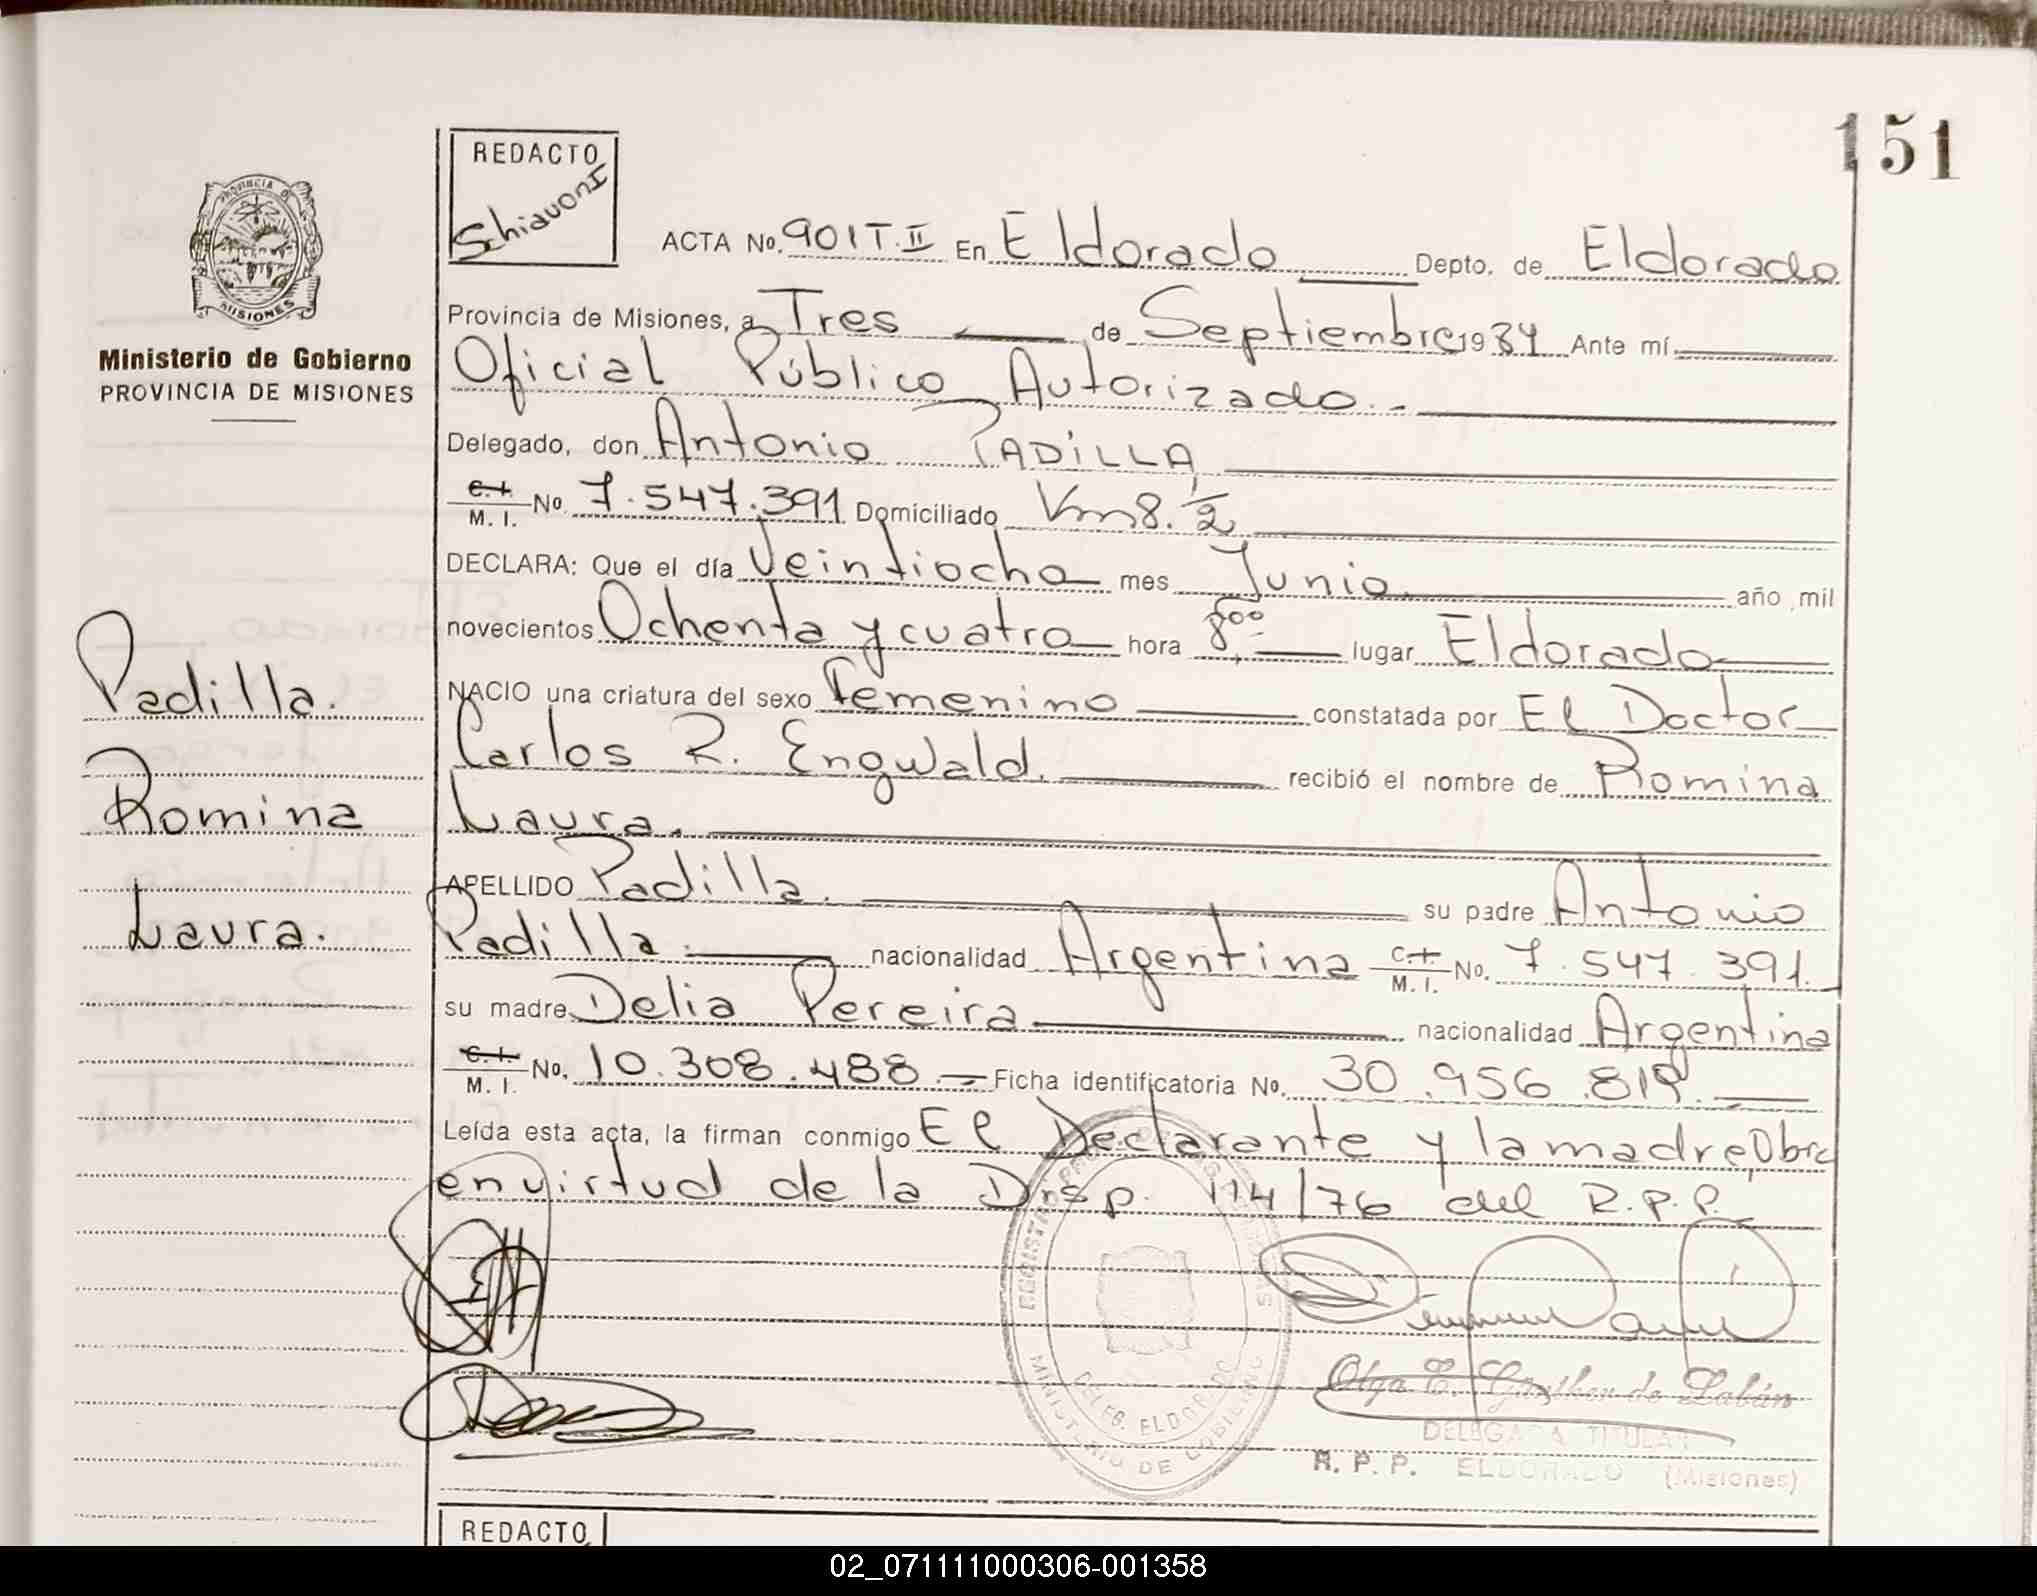 151
REDACTO
Shiavoni
PROVINCIA D
MISIONES
Ministerio de Gobierno
PROVINCIA DE MISIONES
ACTA No. 901 T.II En Eldorado Depto. de Eldorado
Provincia de Misiones, a Tres de Septiembre 1984 Ante mí
Oficial Público Autorizado.-
Delegado, don Antonio PADILLA
C.I. M. I. No. 7.547.391 Domiciliado Km 8.1/2
DECLARA: Que el día Veintiocho mes Junio año mil
novecientos Ochenta y cuatro hora 8,00 lugar Eldorado
NACIO una criatura del sexo femenino constatada por El Doctor
Carlos R. Engwald. recibió el nombre de Romina
Laura.
APELLIDO Padilla. su padre Antonio
Padilla nacionalidad Argentina C.I. M. I. No. 7.547.391.
su madre Delia Pereira nacionalidad Argentina
C.I. M. I. No. 10.308.488.- Ficha identificatoria No. 30.956.819.
Leída esta acta, la firman conmigo El Declarante y la madre, Obra
en virtud de la Disp. 114/76 del R.P.P.
Padilla.
Romina
Laura.
DELEG. ELDORADO
MINISTERIO DE GOBIERNO
Olga E. de Labán
DELEGADA TITULAR
R. P. P. ELDORADO (Misiones)
REDACTO
02_071111000306-001358